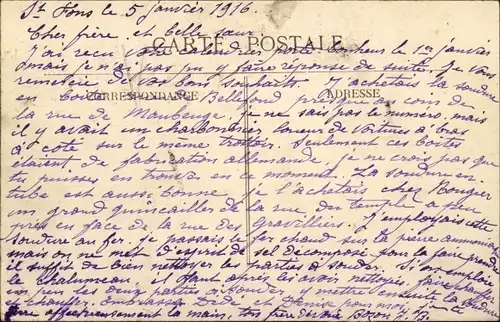 St Fons le 5 janvier 1916.
Cher frère et belle sœur.
CARTE POSTALE
J'ai reçu votre porte bonheur le 1er janvier
mais je n'ai pas pu y faire réponse de suite. Je vous
remercie de vos bons souhaits. J'achetais la soudure
CORRESPONDANCE
ADRESSE
en boites de Bellefond presque au coin de
la rue de Maubeuge, je ne sais pas le numéro, mais
il y avait un charbonnier loueur de voitures à bras
à côté sur le même trottoir. Seulement ces boites
étaient de fabrication allemande, je ne crois pas que
tu puisses en trouver en ce moment. La soudure en
tube est aussi bonne, je l'achetais chez Bougier
un grand quincailler de la rue du Temple à peu
près en face de la rue des Gravilliers. J'employais cette
soudure au fer, je passais le fer chaud sur la pierre ammoniac
mais on ne met d'esprit de sel décomposé pour la faire prendre
il suffit de bien nettoyer les parties à souder. Si on emploie
le chalumeau, il faut après les avoir nettoyés, faire chauffer
un peu les deux parties à souder, y mettre ensuite la
et chauffer. Embrassez Dédé et pour moi
serre affectueusement la main, ton frère